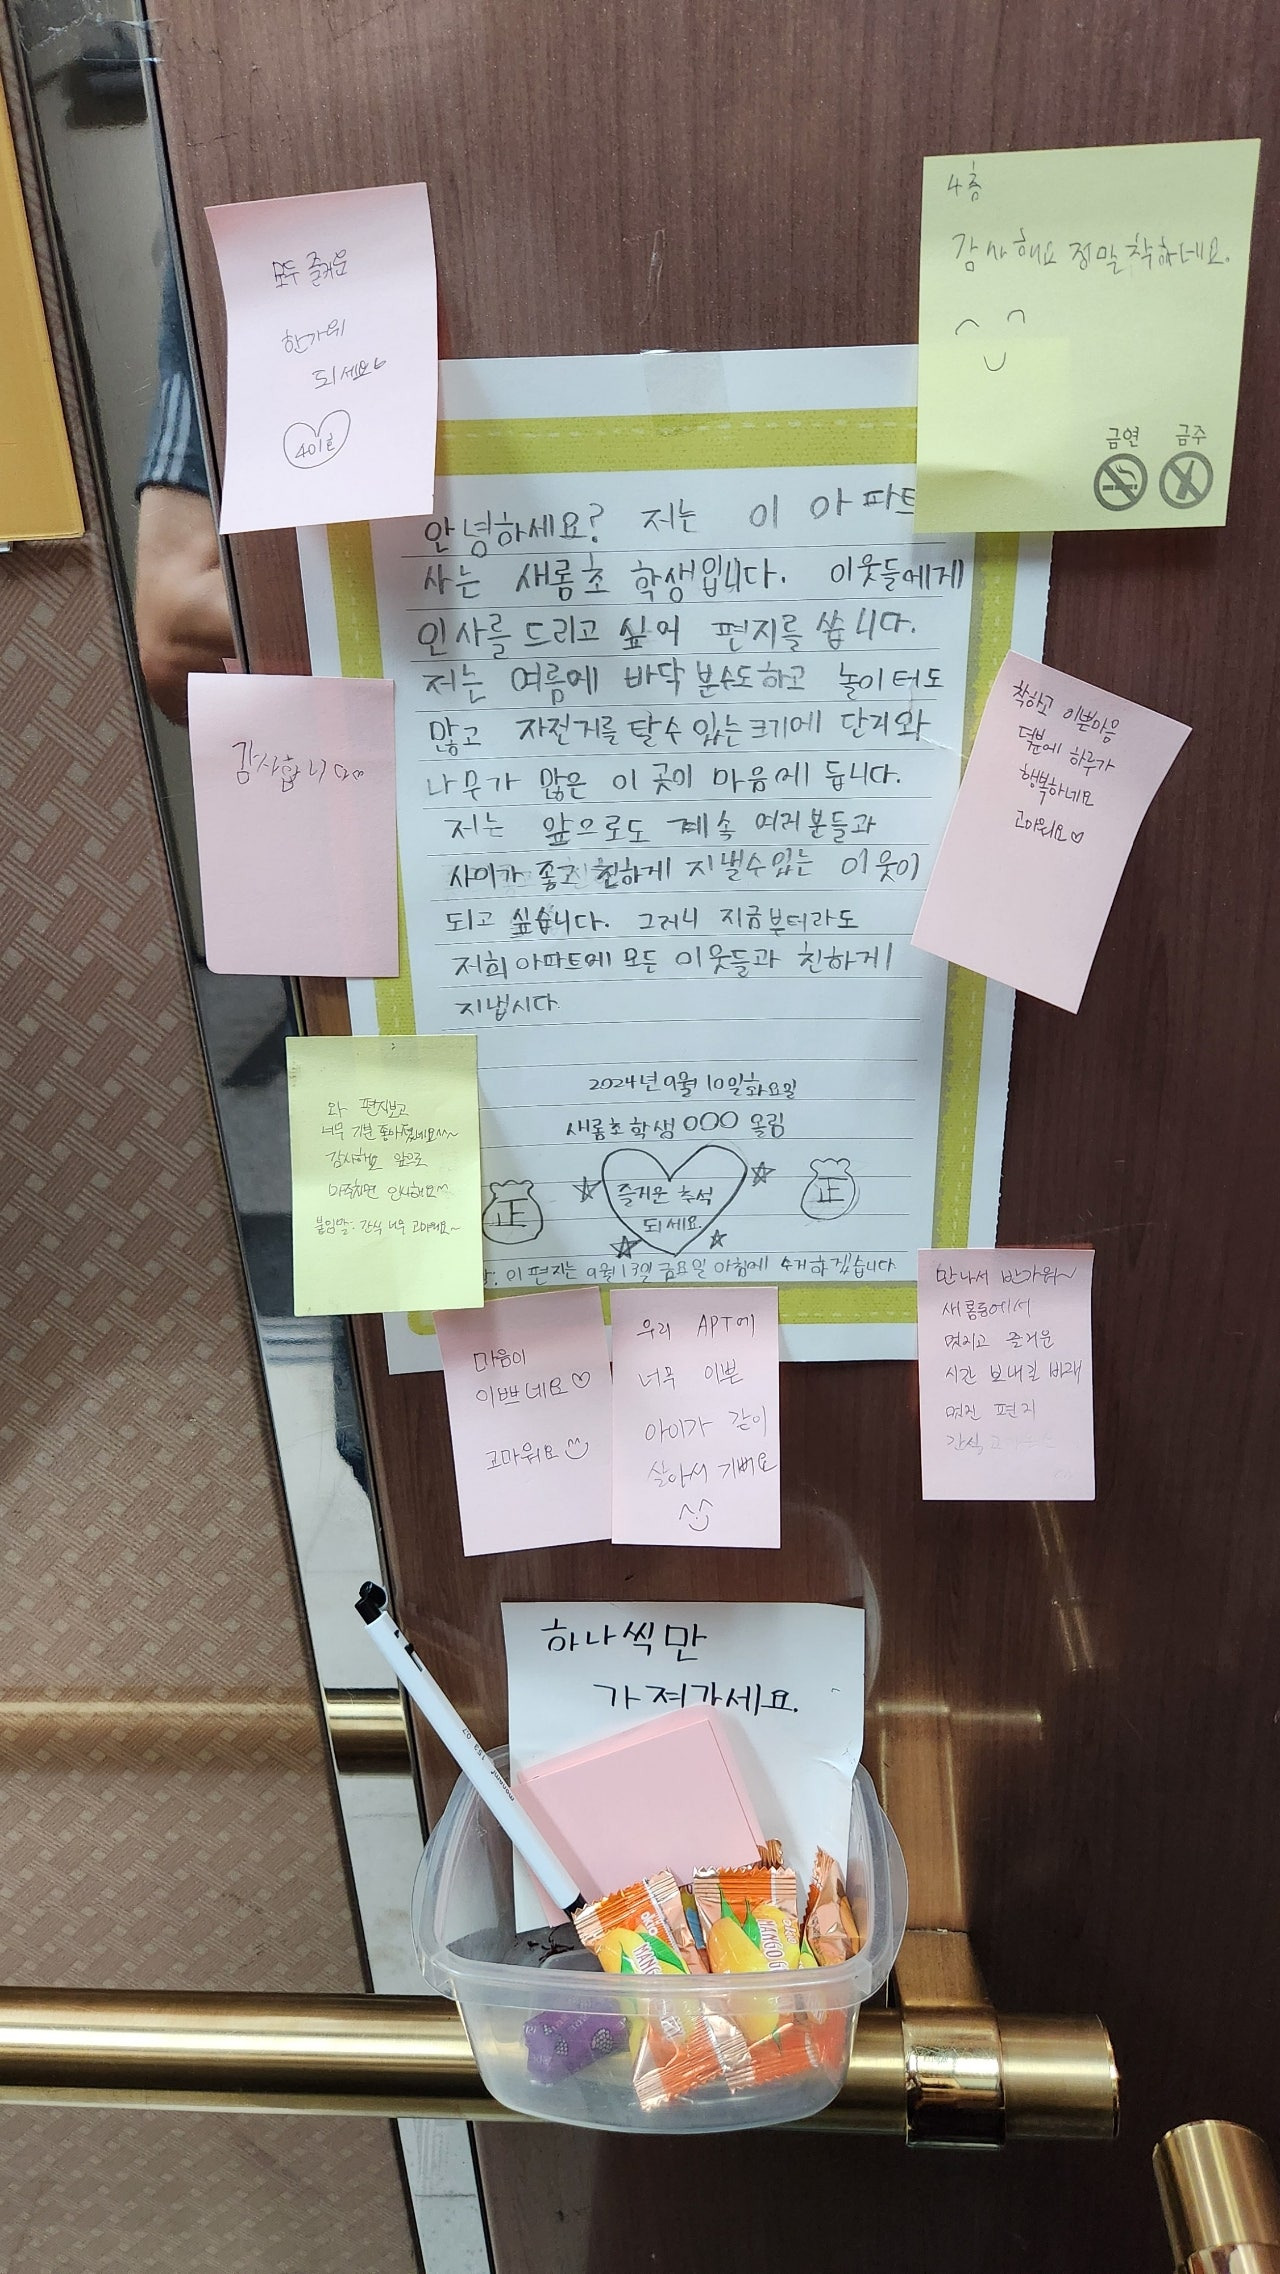 모두 즐거운
한가위
되세요
401호
4층
감사해요 정말 착하네요.
금연 금주
안녕하세요? 저는 이 아파트
사는 새롬초 학생입니다. 이웃들에게
인사를 드리고 싶어 편지를 씁니다.
저는 여름에 바닥 분수도 하고 놀이터도
많고 자전거를 탈 수 있는 크기에 단지와
나무가 많은 이 곳이 마음에 듭니다.
저는 앞으로도 계속 여러분들과
사이가 좋고 친하게 지낼 수 있는 이웃이
되고 싶습니다. 그러니 지금부터라도
저희 아파트에 모든 이웃들과 친하게
지냅시다.
2024년 9월 10일 화요일
새롬초 학생 OOO 올림
즐거운 추석
되세요.
正
正
이 편지는 9월 13일 금요일 아침에 수거하겠습니다
감사합니다♡
착하고 이쁜마음
덕분에 하루가
행복하네요
고마워요♡
와 편지보고
너무 기분 좋아졌네요^^~
감사해요 앞으로
마주치면 인사해요^^
붙임말: 간식 너무 고마워요~
마음이
이쁘네요♡
고마워요
우리 APT에
너무 이쁜
아이가 같이
살아서 기뻐요
만나서 반가워~
새롬동에서
멋지고 즐거운
시간 보내길 바래
멋진 편지
간식
하나씩만
가져가세요.
monami 153 0.7
MANGO
MANGO